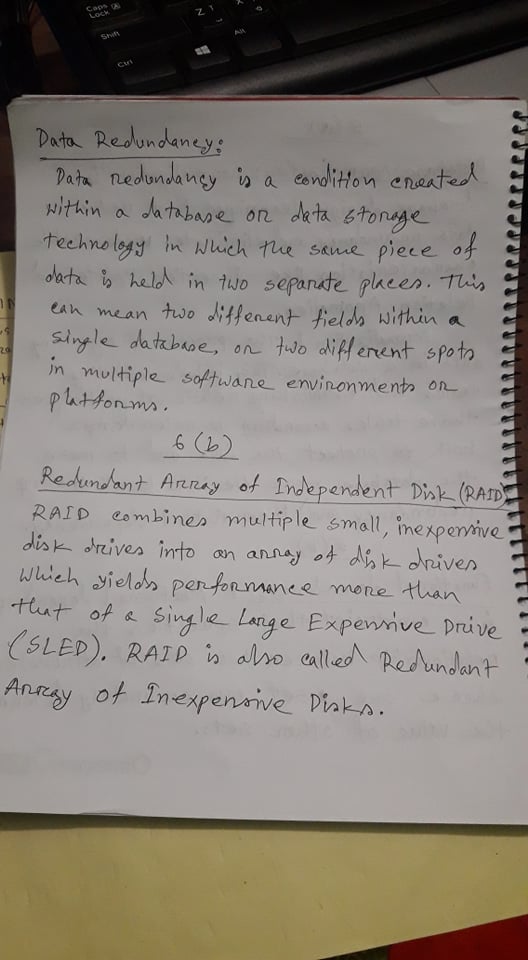 Caps Lock
Shift
Ctrl
Z
Alt
Data Redundancy:
Data redundancy is a condition created
within a database or data storage
technology in which the same piece of
data is held in two separate places. This
can mean two different fields within a
single database, or two different spots
in multiple software environments or
platforms.
6 (b)
Redundant Array of Independent Disk (RAID)
RAID combines multiple small, inexpensive
disk drives into an array of disk drives
which yields performance more than
that of a Single Large Expensive Drive
(SLED). RAID is also called Redundant
Array of Inexpensive Disks.